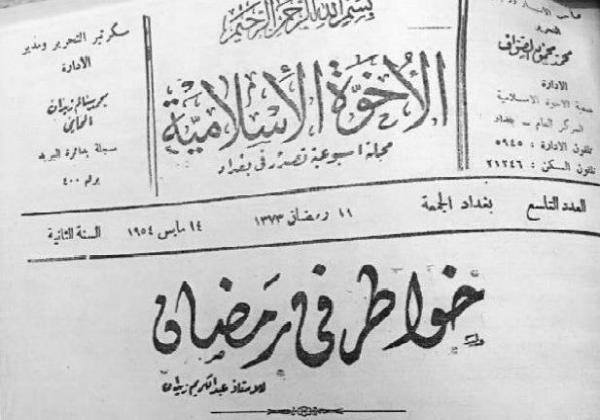 بسم الله الرحمن الرحيم
صاحب الامتياز
التحرير
محمد محمود الصواف
الادارة
جمعية الاخوة الاسلامية
المركز العام - بغداد
تلفون الادارة : ٥٩٤٥
تلفون السكن : ٢١٢٤٦
الأخوة الأسلامية
مجلة اسبوعية تصدر في بغداد
سكرتير التحرير ومدير
الادارة
المحامي
مسجلة بدائرة البريد
برقم ٤٠٠
العدد التاسع بغداد الجمعة ١١ رمضان ١٣٧٣ ١٤ مايس ١٩٥٤ السنة الثانية
خواطر في رمضان
للاستاذ عبدالكريم زيدان